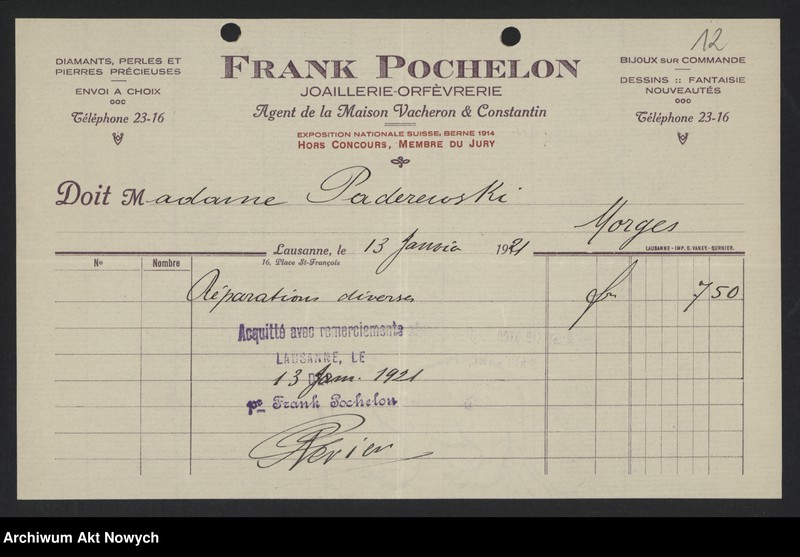 12
DIAMANTS, PERLES ET
PIERRES PRÉCIEUSES
ENVOI A CHOIX
Téléphone 23-16
FRANK POCHELON
JOAILLERIE-ORFÈVRERIE
Agent de la Maison Vacheron & Constantin
EXPOSITION NATIONALE SUISSE, BERNE 1914
HORS CONCOURS, MEMBRE DU JURY
BIJOUX SUR COMMANDE
DESSINS :: FANTAISIE
NOUVEAUTÉS
Téléphone 23-16
Doit Madame Paderewski
Morges
Lausanne, le 13 Janvier 1921
16, Place St-François
LAUSANNE - IMP. G. VANEY-BURNIER.
No Nombre
Réparations diverses fr 7 50
Acquitté avec remerciements
LAUSANNE, LE
13 Jan. 1921
pr Frank Pochelon
Archiwum Akt Nowych